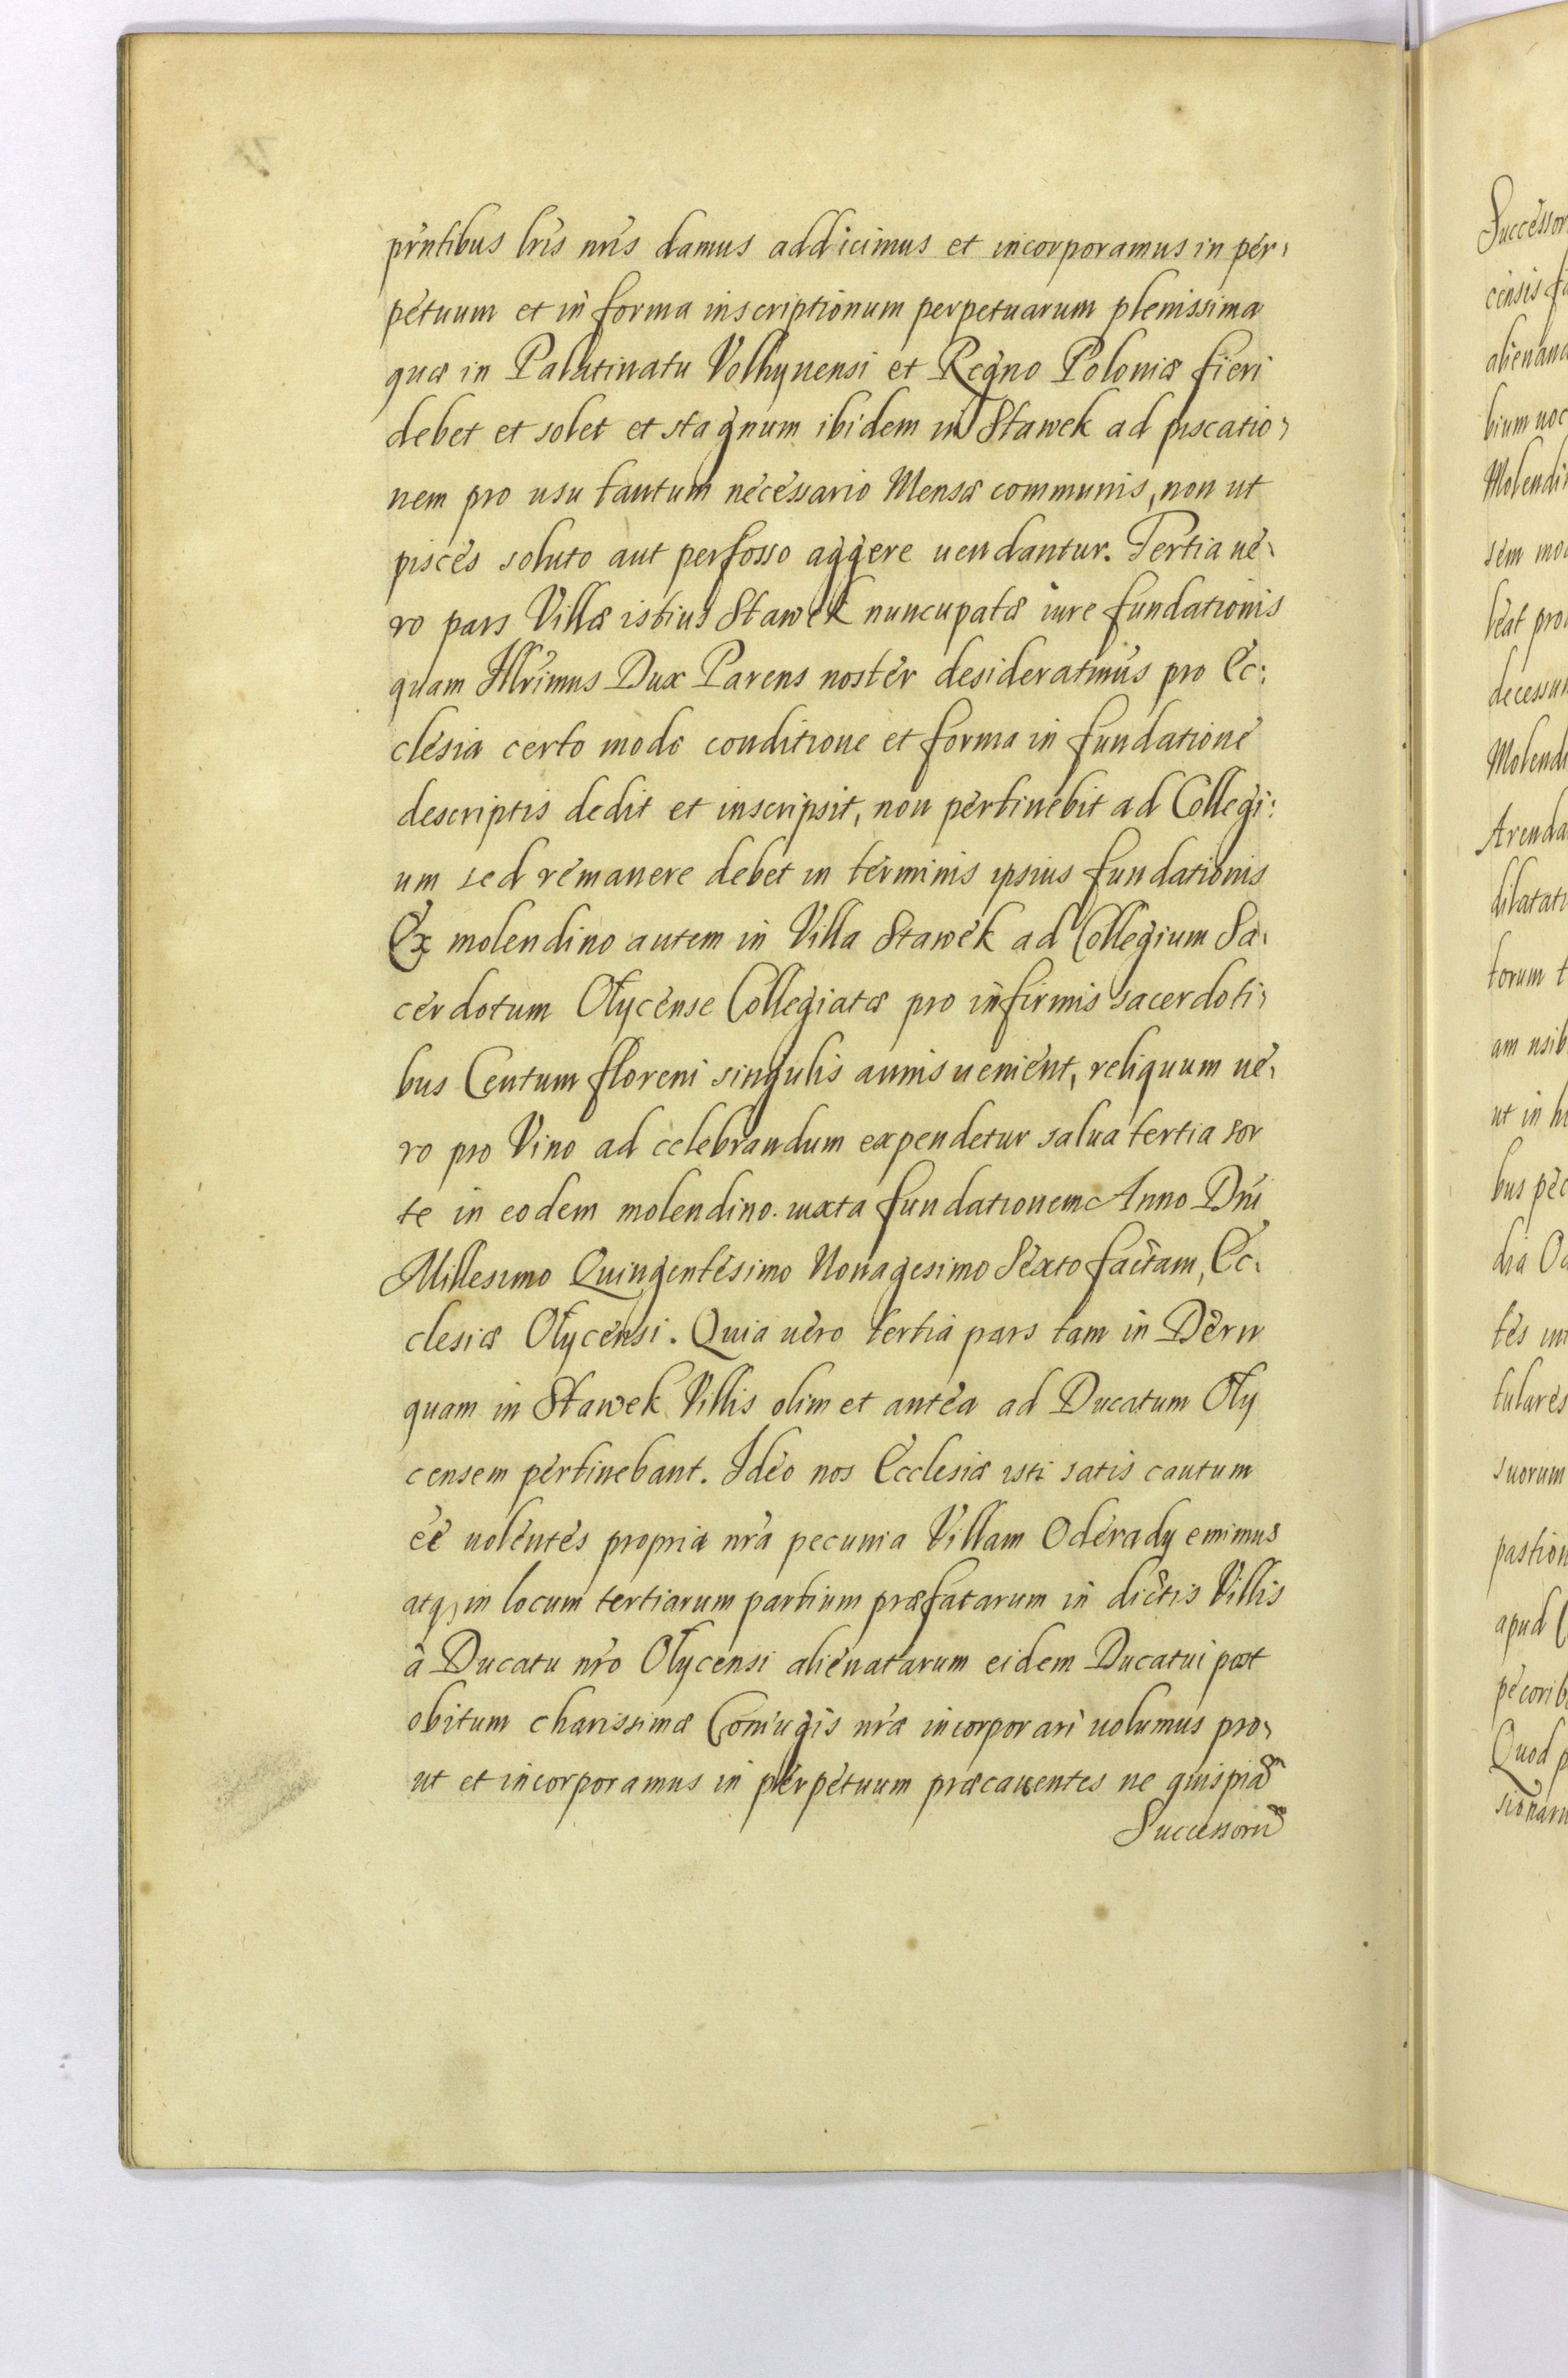 prntibus lris nris damus addicimus et incorporamus in per,
petuum et in forma inscriptionum perpetuarum plenissima
quæ in Palatinatu Volhynensi et Regno Poloniæ fieri
debet et solet et stagnum ibidem in Stawek ad piscatio,
nem pro usu tantum necessario Mensæ communis, non ut
pisces soluto aut perfosso aggere uendantur. Tertia ue,
ro pars Villæ istius Stawek nuncupatæ iure fundationis
quam Illrimus Dux Parens noster desideratmus pro Ec:
clesia certo modo conditione et forma in fundatione
descriptis dedit et inscripsit, non pertinebit ad Collegi:
um sed remanere debet in terminis ipsius fundationis
Ex molendino autem in Villa Stawek ad Collegium Sa,
cerdotum Olycense Collegiatæ pro infirmis sacerdoti,
bus Centum floreni singulis annis uenient, reliquum ue,
ro pro Vino ad celebrandum expendetur salua tertia sor
te in eodem molendino. iuxta fundationem Anno Dni
Millesimo Quingentesimo Nonagesimo Sexto factam, Ec,
clesiæ Olycensi. Quia uero tertia pars tam in Derw
quam in Stawek Villis olim et antea ad Ducatum Oly
censem pertinebant. Ideo nos Ecclesiæ isti satis cautum
ee uolentes propria nra pecunia Villam Oderady emimus
atq; in locum tertiarum partium præfatarum in dictis Villis
à Ducatu nro Olycensi alienatarum eidem Ducatui post
obitum charissimæ Coniugis nræ incorporari uolumus pro,
ut et incorporamus in perpetuum præcauentes ne quispiã
Successorũ
Successor
censis
alienand
bium uoc
Molendi
sem mo
leat pro
decessu
Molend
Arenda
dilatat
torum t
am usib
ut in h
bus pec
dia O
tes in
tulares
suorum
pastion
apud
pecorib
Quod p
sionaru